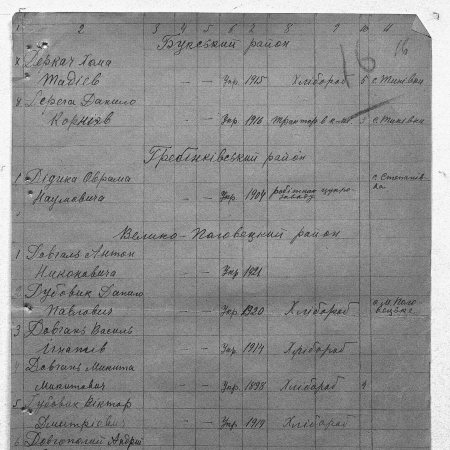 1 2 3 4 5 6 7 8 9 10 11
Букський район
16 16
Деркач Хома
Тадієв — — Укр. 1915 Хлібороб 5 с. Тинівка
Герега Данило
Корнієв — — Укр. 1916 с. Тинівка
Гребінківський район
1 Дідика с. Степанів
Наумовича — — Укр. 1904 робітник цукро- ка
заводу
Велико-Половецький район
1 Довгаль Антон
Никонович — — Укр 1921
2 Дубовик Данило
Павлович — — Укр. 1920 Хлібороб с. М. Поло
вецьке
3 Довгань Василь
— — Укр. 1914 Хлібороб
4 Довгань Микита
Микитович — — Укр. 1898 Хлібороб
5 Дубовик Віктор
Дмитрієвич — — Укр. 1919 Хлібороб
6 Довгополий Андрій